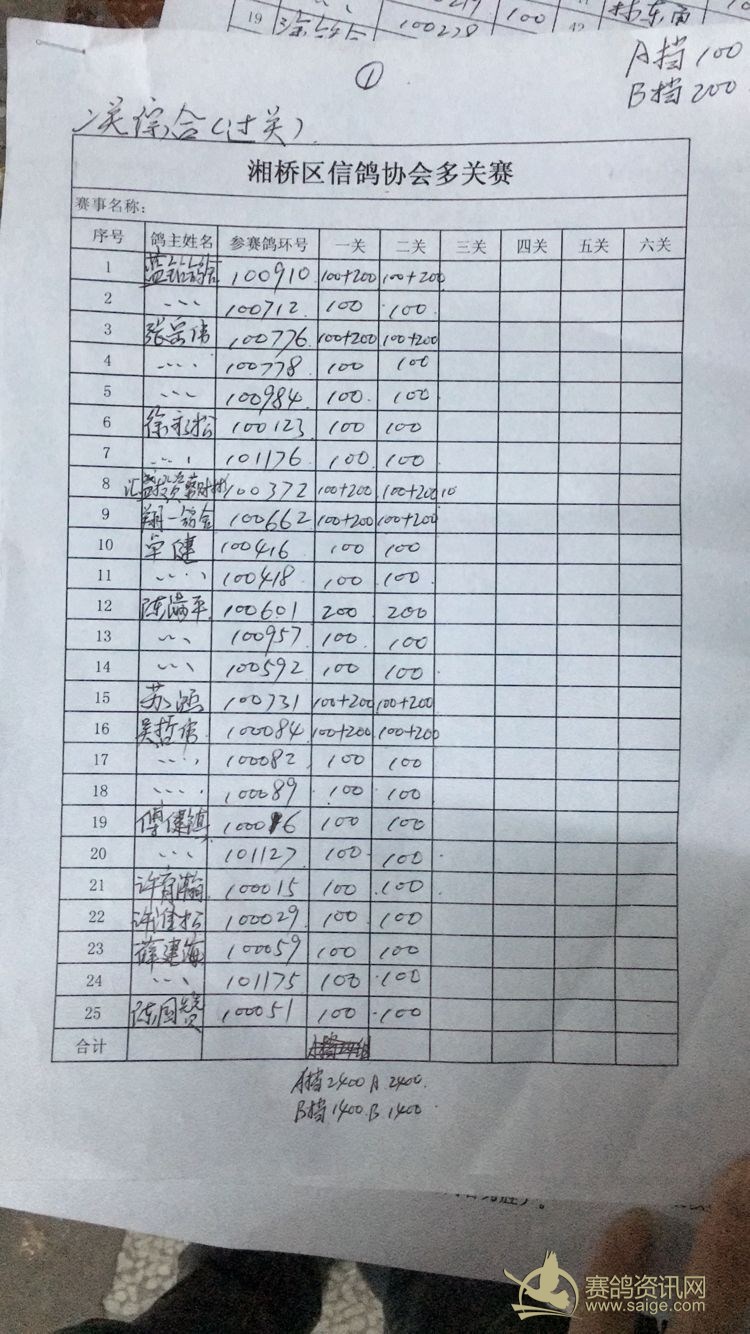 19 100228 100 42
①
A挡 100
B挡 200
二关综合(过关)
湘桥区信鸽协会多关赛
赛事名称:
序号 鸽主姓名 参赛鸽环号 一关 二关 三关 四关 五关 六关
1 100910 100+200 100+200
2 〃 100712 100 100
3 张岳伟 100776 100+200 100+200
4 〃 100778 100 100
5 〃 100984 100 100
6 徐永松 100123 100 100
7 〃 101176 100 100
8 100372 100+200 100+200 10
9 翔一鸽舍 100662 100+200 100+200
10 卓健 100416 100 100
11 〃 100418 100 100
12 陈满平 100601 200 200
13 〃 100957 100 100
14 〃 100592 100 100
15 苏 100731 100+200 100+200
16 吴哲伟 100084 100+200 100+200
17 〃 100082 100 100
18 〃 100089 100 100
19 100016 100 100
20 〃 101127 100 100
21 许育瀚 100015 100 100
22 许淮松 100029 100 100
23 薛建海 100059 100 100
24 〃 101175 100 100
25 陈国贤 100051 100 100
合计
A挡2400 A 2400.
B挡1400. B 1400.
赛鸽资讯网
www.saige.com